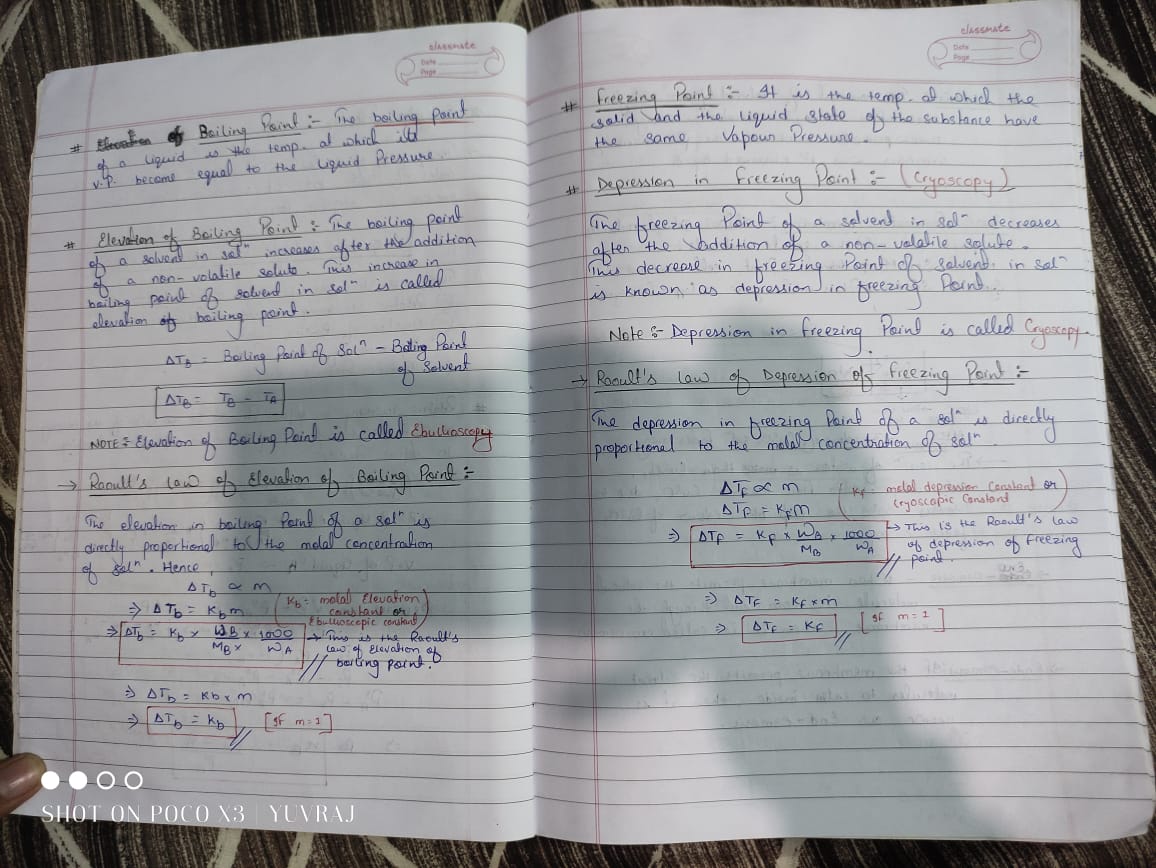 classmate
Date
Page
# Elevation of Boiling Point :- The boiling point
of a liquid is the temp. at which its
V.P. become equal to the liquid Pressure.
# Elevation of Boiling Point : The boiling point
of a solvent in solⁿ increases after the addition
of a non-volatile solute. This increase in
boiling point of solvent in solⁿ is called
elevation of boiling point.
ΔTB = Boiling Point of Solⁿ - Boiling Point
of Solvent
ΔTB = TB - TA
NOTE :- Elevation of Boiling Point is called Ebullioscopy
→ Raoult's Law of Elevation of Boiling Point :-
The elevation in boiling Point of a solⁿ is
directly proportional to the molal concentration
of solⁿ. Hence,
ΔTb ∝ m
⇒ ΔTb = Kbm (Kb = molal Elevation
constant or
Ebullioscopic constant)
⇒ ΔTb = Kb × WB/MB × 1000/WA → This is the Raoult's
Law of Elevation of
boiling point.
⇒ ΔTb = Kb × m
⇒ ΔTb = Kb [If m = 1]
classmate
Date
Page
# Freezing Point :- It is the temp. at which the
solid and the liquid state of the substance have
the same Vapour Pressure.
# Depression in Freezing Point :- (Cryoscopy)
The freezing Point of a solvent in solⁿ decreases
after the addition of a non-volatile solute.
This decrease in freezing Point of solvent in solⁿ
is known as depression in freezing Point.
Note :- Depression in freezing Point is called Cryoscopy.
→ Raoult's Law of Depression of Freezing Point :-
The depression in freezing Point of a solⁿ is directly
proportional to the molal concentration of solⁿ.
ΔTF ∝ m (Kf = molal depression Constant or
ΔTF = KFm cryoscopic Constant)
⇒ ΔTF = KF × WA/MB × 1000/WA → This is the Raoult's Law
of depression of freezing
point.
⇒ ΔTF = KF × m
⇒ ΔTF = KF [If m = 1]
SHOT ON POCO X3 | YUVRAJ